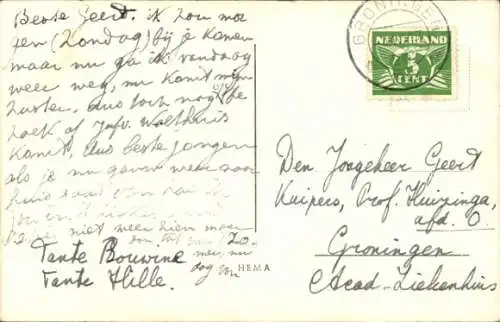 Beste Geert. ik zou mor
gen (Zondag) bij je komen
maar nu ga ik vandaag
weer weg, nu komt mijn
zuster, dus toch nog be
zoek of Jufv. Wolthuis
komt, dus beste jongen
als je nu gauw weer naar
huis
niet weer hier maar
Tante Bouwine
Tante Hille.
HEMA
GRONINGEN
NEDERLAND
3
CENT
Den Jongeheer Geert
Kuipers, Prof. Huizinga,
afd. O
Groningen
Acad-Ziekenhuis